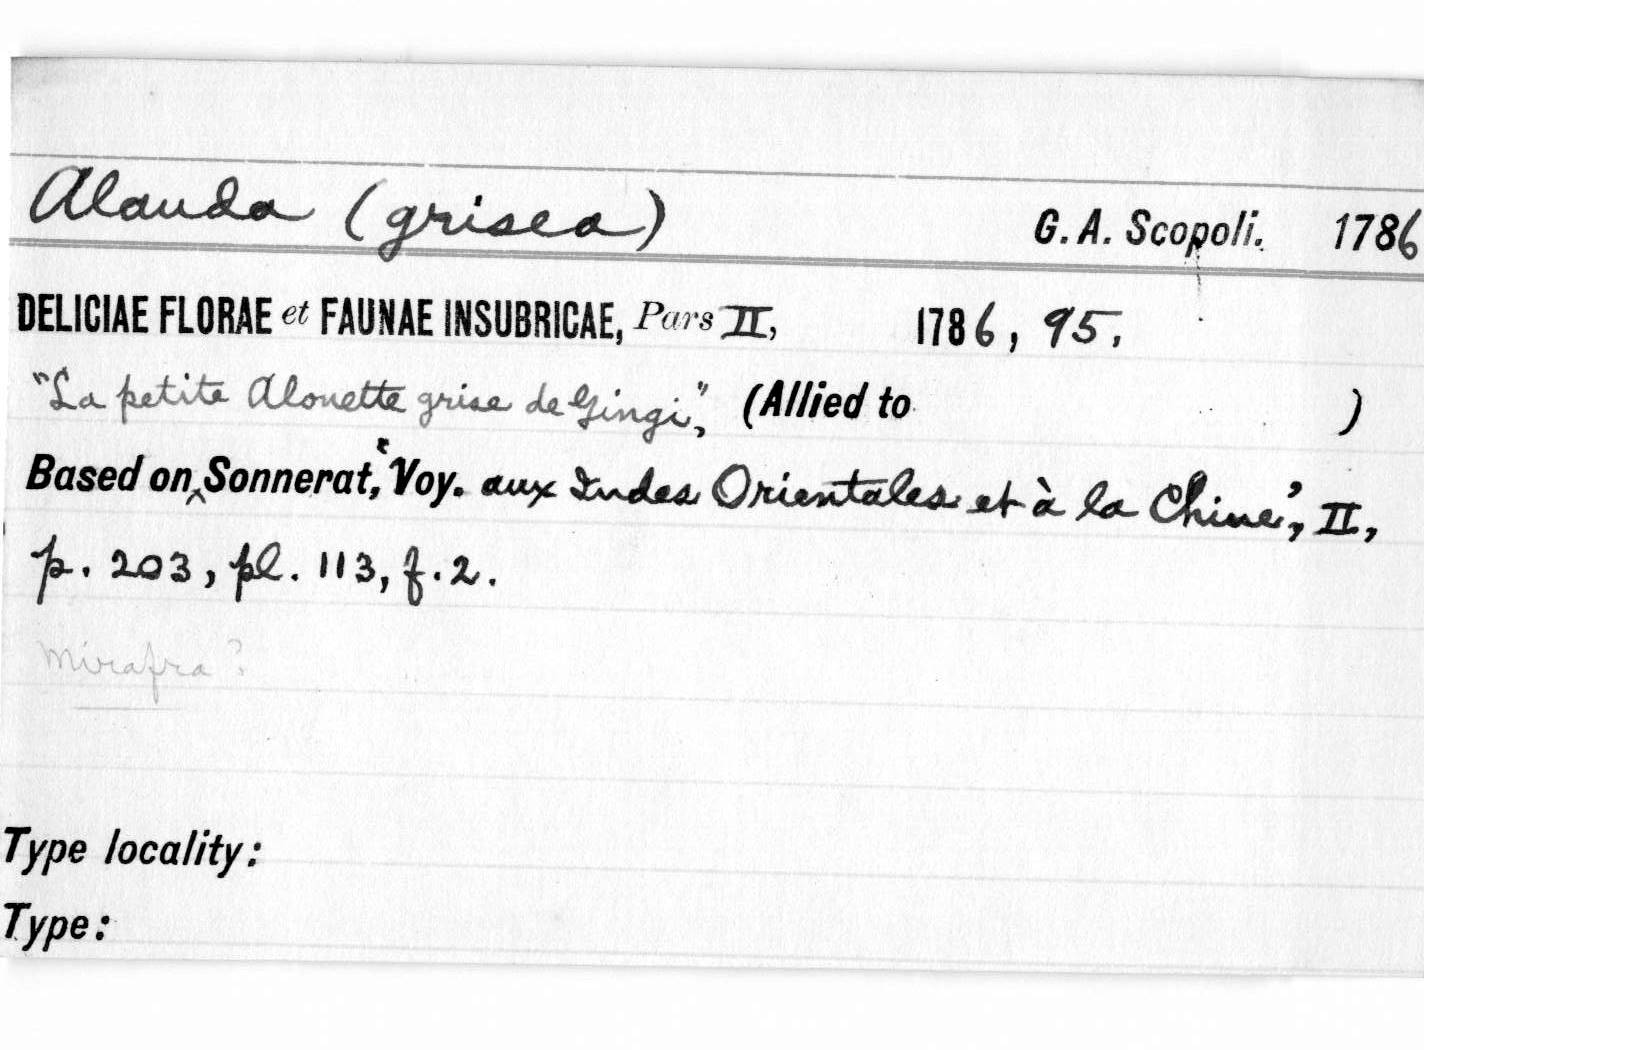 Alauda (grisea) G. A. Scopoli. 1786
DELICIAE FLORAE et FAUNAE INSUBRICAE, Pars II, 1786, 95.
"La petite Alouette grise de Gingi", (Allied to )
Based on ‸ Sonnerat, 'Voy. aux Indes Orientales et à la Chine', II,
p. 203, pl. 113, f. 2.
Mirafra?
Type locality:
Type: